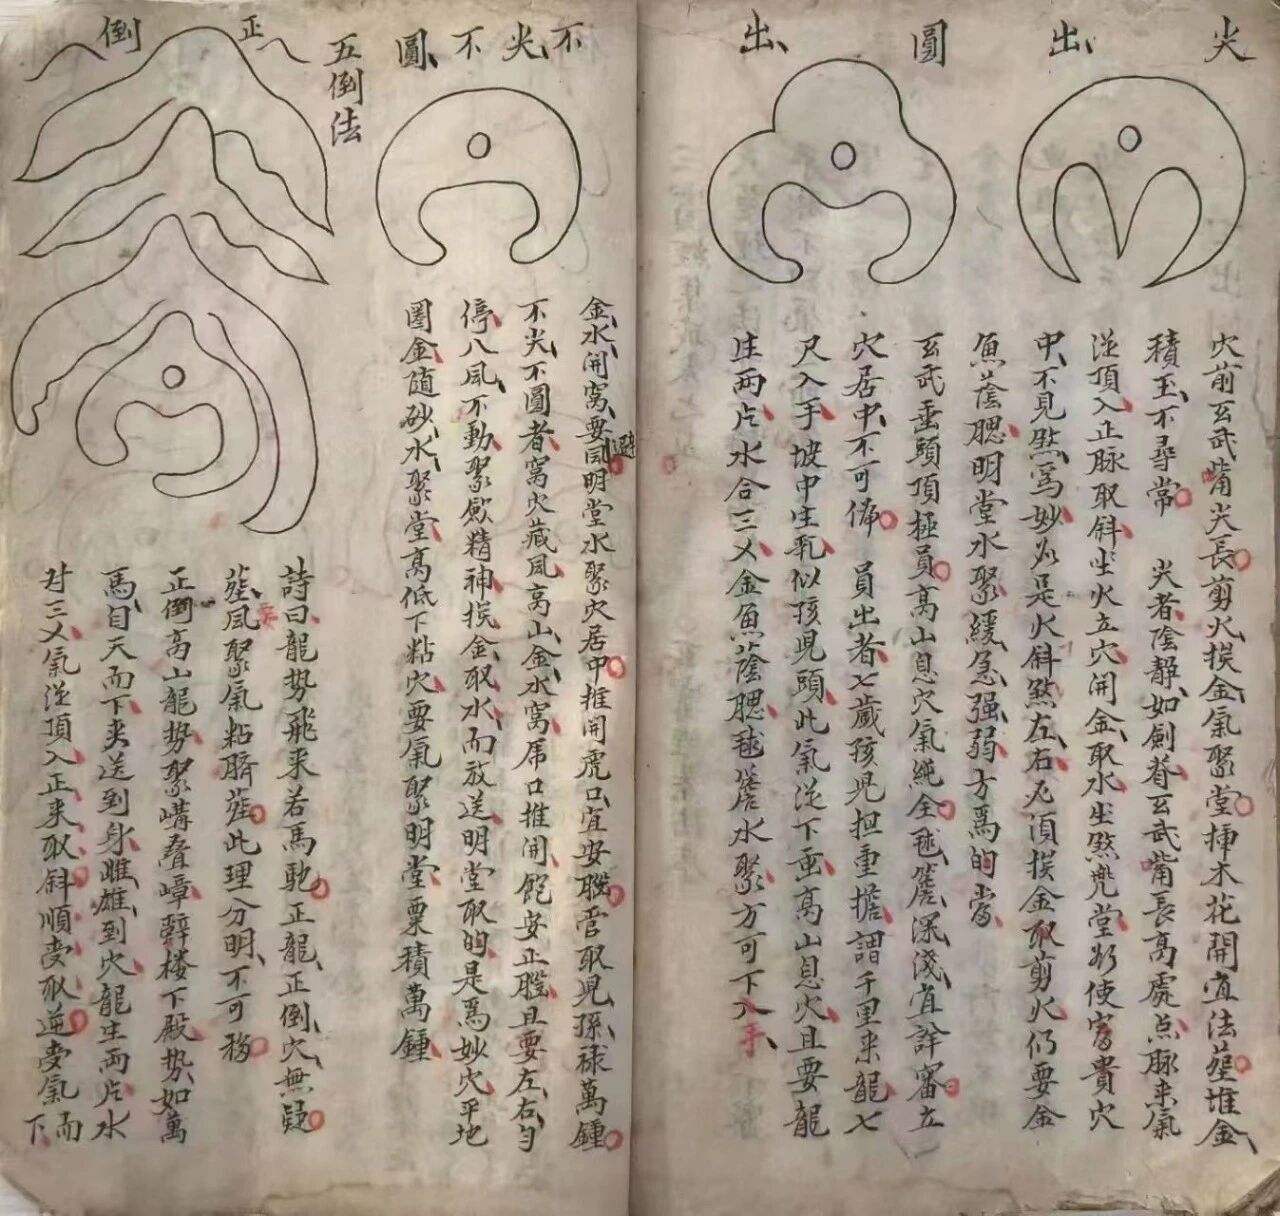 尖出
穴前玄武嘴尖長剪火挨金氣聚堂揷木花開宜法塟堆金
積玉不尋常　尖者陰靜如劍脊玄武嘴長高處点脉来氣
從頂入正脉取斜坐火立穴開金取水坐煞堂使富貴穴
中不見煞為妙是火斜煞左右須挨金取剪火仍要金
魚蔭腮明堂水聚緩急强弱方為的當
圓出
玄武垂頭頂極員高山息穴氣純全毬簷深淺宜詳審立
穴居中不可偏　員出者七歲孩児担重擔謂千里来龍七
尺入手坡中生乳似孩児頭此氣從下重高山息火且要龍
生两片水合三乂金魚蔭腮毬簷水聚方可下入手
不尖不圓
金水開窩要避風明堂水聚穴居中推開虎口宜安取児孫禄萬鍾
不尖不圓者窩穴藏風高山金水窩虎口推開飽安正且要左右匀
停八風不動聚歛精神挨金取水而放送明堂取的是為妙穴平地
圈金随砂水聚堂高低下粘穴要氣聚明堂粟積萬鍾
五倒法
正倒
詩曰龍势飛来若馬馳正龍正倒穴無疑
塟風聚氣粘臍塟此理分明不可移
正倒高山龍势聚嶂辞楼下殿势如萬
馬自天而下夹送到身雌雄到穴龍生两片水
对三乂氣從頂入正来取斜順受取逆受氣而
下